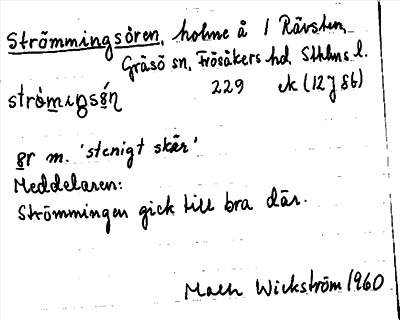 Strömmingsören, holme å 1 Rävsten,
Gräsö sn, Frösåkers hd, Sthlms l.
strömıŋsö́n 229 ek (12J 8b)
ör m. 'stenigt skär'
Meddelaren:
Strömmingen gick till bra där.
Mats Wickström 1960